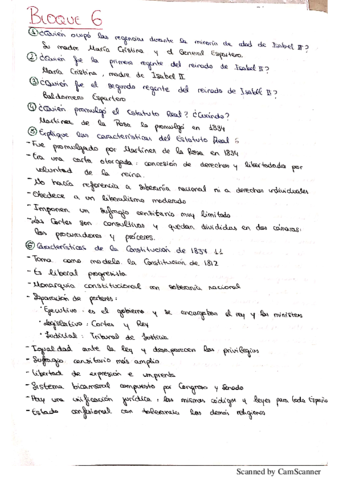 BLOQUE 6
① ¿Quién ocupó las regencias durante la minoría de edad de Isabel II?
Su madre María Cristina y el General Espartero.
② ¿Quién fue la primera regente del reinado de Isabel II?
María Cristina, madre de Isabel II
③ ¿Quién fue el segundo regente del reinado de Isabel II?
Baldomero Espartero
④ ¿Quién promulgó el Estatuto Real? ¿Cuándo?
Martínez de la Rosa lo promulgó en 1834
⑤ Explique las características del Estatuto Real
- Fue promulgado por Martínez de la Rosa en 1834
- Era una carta otorgada: concesión de derechos y libertades por
voluntad de la reina.
- No hacía referencia a soberanía nacional ni a derechos individuales
- Obedece a un liberalismo moderado
- Imponen un sufragio censitario muy limitado
- Las Cortes son consultivas y quedan divididas en dos cámaras:
los procuradores y próceres.
⑥ Características de la Constitución de 1837
- Toma como modelo la Constitución de 1812
- Es liberal progresista
- Monarquía constitucional con soberanía nacional
- Separación de poderes:
· Ejecutivo: es el gobierno y se encargaban el rey y los ministros
· Legislativo: Cortes y Rey
· Judicial: Tribunal de Justicia
- Igualdad ante la ley y desaparecen los privilegios
- Sufragio censitario más amplio
- Libertad de expresión e imprenta
- Sistema bicameral compuesto por Congreso y Senado
- Hay una unificación jurídica: los mismos códigos y leyes para toda España
- Estado confesional con tolerancia las demás religiones
Scanned by CamScanner